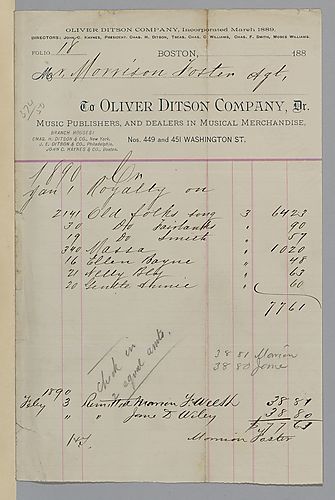 OLIVER DITSON COMPANY, Incorporated March 1889.
DIRECTORS: JOHN C. HAYNES, PRESIDENT. CHAS. H. DITSON, TREAS. CHAS. C. WILLIAMS, CHAS. F. SMITH, MOSES WILLIAMS.
FOLIO 18 BOSTON, 188
Mr. Morrison Foster Agt,
To OLIVER DITSON COMPANY, Dr.
MUSIC PUBLISHERS, AND DEALERS IN MUSICAL MERCHANDISE,
BRANCH HOUSES:
CHAS. H. DITSON & CO., New York.
J. E. DITSON & CO., Philadelphia.
JOHN C. HAYNES & CO., Boston.
Nos. 449 and 451 WASHINGTON ST.
1890 Cr
Jan 1 Royalty on
2141 Old folks song 3 6423
30 Do Fairbanks " 90
19 Do Smith " 57
340 Massa " 1020
16 Ellen Bayne " 48
21 Nelly Bly " 63
20 Gentle Annie " 60
7761
check in
equal amts.
38 81 Marion
38 80 Jane
1890
Feby 3 Remitted Marion F. Welsh 38 81
" " Jane D Wiley 38 80
$77 61
Morrison Foster